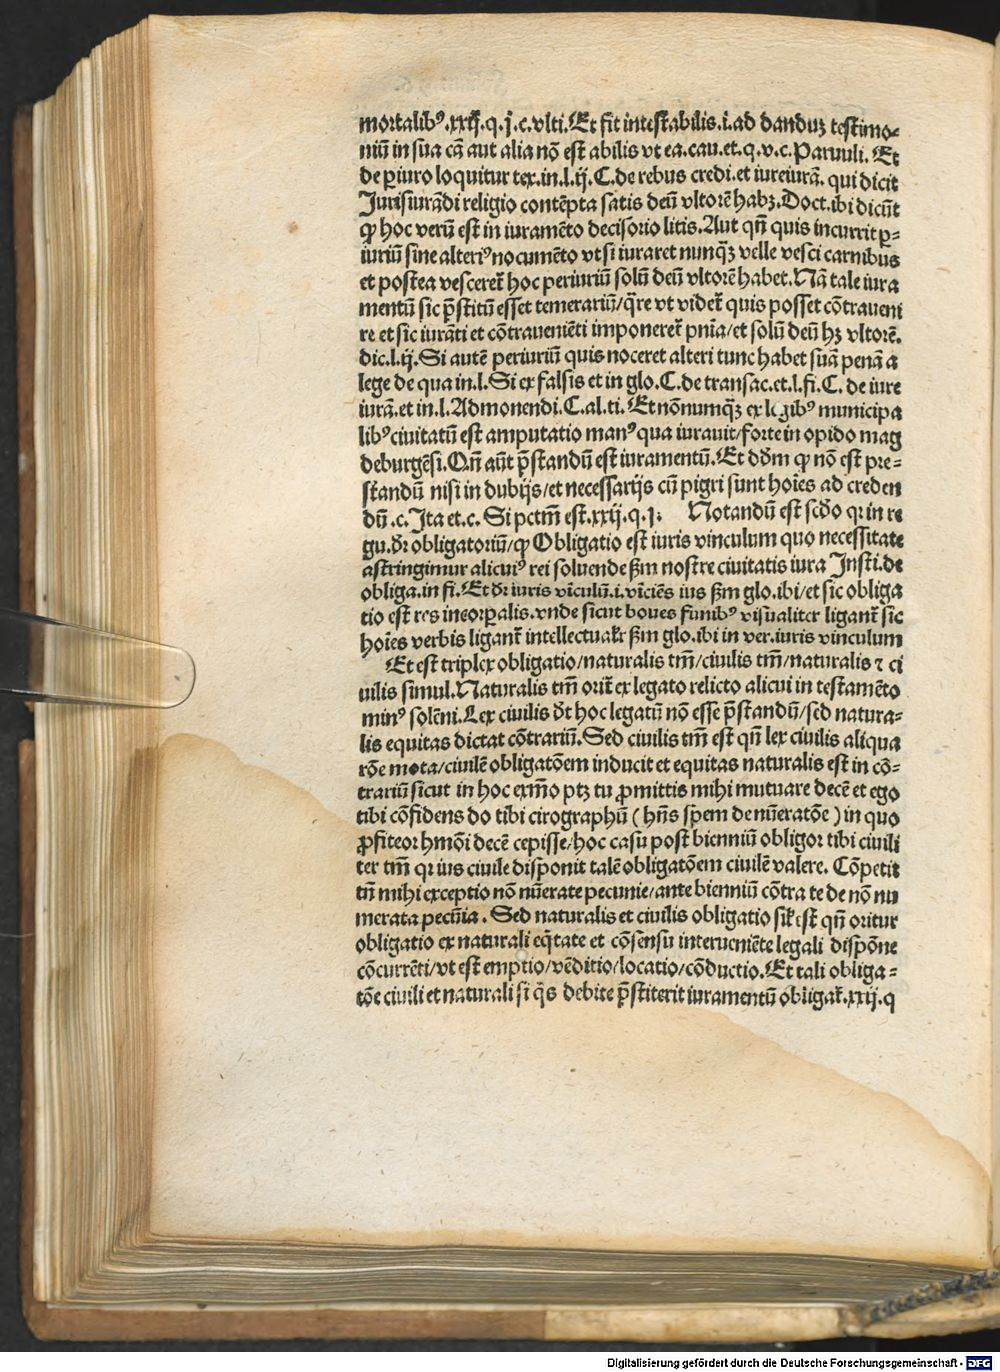 mortalibꝰ.xxij.q.j.c.vlti.Et fit intestabilis.i.ad danduȝ testimo⸗
niū in sua cā aut alia nō est abilis vt ea.cau.et.q.v.c.Paruuli. Et
de ꝑiuro loquitur tex.in.l.ij.C.de rebus credi.et iureiurā. qui dicit
Jurisiurādi religio contēpta satis deū vltorē habꝫ.Doct.ibi dicūt
ꝙ hoc verū est in iuramēto decisorio litis.Aut qn̄ quis incurrit ꝑ⸗
iuriū sine alteriꝰ nocumēto vt si iuraret nunq̄ꝫ velle vesci carnibus
et postea vesceret̄ hoc periuriū solū deū vltorē habet.Nā tale iura
mentū sic p̄stitū esset temerariū/q̄re vt videt̄ quis posset cōtraueni
re et sic iurāti et cōtrauenīeti imponeret̄ pnīa/et solū deū hꝫ vltorē.
dic.l.ij.Si autē periuriū quis noceret alteri tunc habet suā penā a
lege de qua in.l.Si ex falsis et in glo.C.de transac.et.l.fi.C. de iure
iurā.et in.l.Admonendi.C.al.ti.Et nōnumq̄ꝫ ex legibꝰ municipa
libꝰ ciuitatū est amputatio manꝰ qua iurauit/forte in opido mag
deburgēsi.Qn̄ aūt p̄standū est iuramentū.Et dōm ꝙ nō est pre⸗
standū nisi in dubijs/et necessarijs cū pigri sunt hoīes ad creden
dū.c.Ita et.c.Si pctm̄ est.xxij.q.j. Notandū est scd̄o qꝛ in re
gu.dꝛ obligatoriū/ꝙ Obligatio est iuris vinculum quo necessitate
astringimur alicuiꝰ rei soluende ẜm nostre ciuitatis iura Insti.de
obliga.in fi.Et dꝛ iuris vīculū.i.vīciēs ius ẜm glo.ibi/et sic obliga
tio est res incorꝑalis.vnde sicut boues funibꝰ visualiter ligant̄ sic
hoīes verbis ligant̄ intellectualr̄ ẜm glo.ibi in ver.iuris vinculum
Et est triplex obligatio/naturalis tm̄/ciuilis tm̄/naturalis ⁊ ci
uilis simul.Naturalis tm̄ orit̄ ex legato relicto alicui in testamēto
minꝰ solēni.Lex ciuilis d̄t hoc legatū nō esse p̄standū/sed natura⸗
lis equitas dictat cōtrariū.Sed ciuilis tm̄ est qn̄ lex ciuilis aliqua
rōe mota/ciuilē obligatōem inducit et equitas naturalis est in cō⸗
trariū sicut in hoc exm̄o ptꝫ tu ꝓmittis mihi mutuare decē et ego
tibi cōfidens do tibi cirographū ( hn̄s spem de nūeratōe ) in quo
ꝓfiteor hmōi decē cepisse/hoc casu post bienniū obligor tibi ciuili
ter tm̄ qꝛ ius ciuile disponit talē obligatōem ciuilē valere. Cōpetit
tn̄ mihi exceptio nō nūerate pecunie/ante bienniū cōtra te de nō nu
merata pecūia. Sed naturalis et ciuilis obligatio sil̄ est qn̄ oritur
obligatio ex naturali eq̄tate et cōsensu interueniēte legali dispōne
cōcurrēti/vt est emptio/vēditio/locatio/cōductio.Et tali obliga⸗
tōe ciuili et naturali si q̄s debite p̄stiterit iuramentū obligat̄.xxij.q
Digitalisierung gefördert durch die Deutsche Forschungsgemeinschaft - DFG